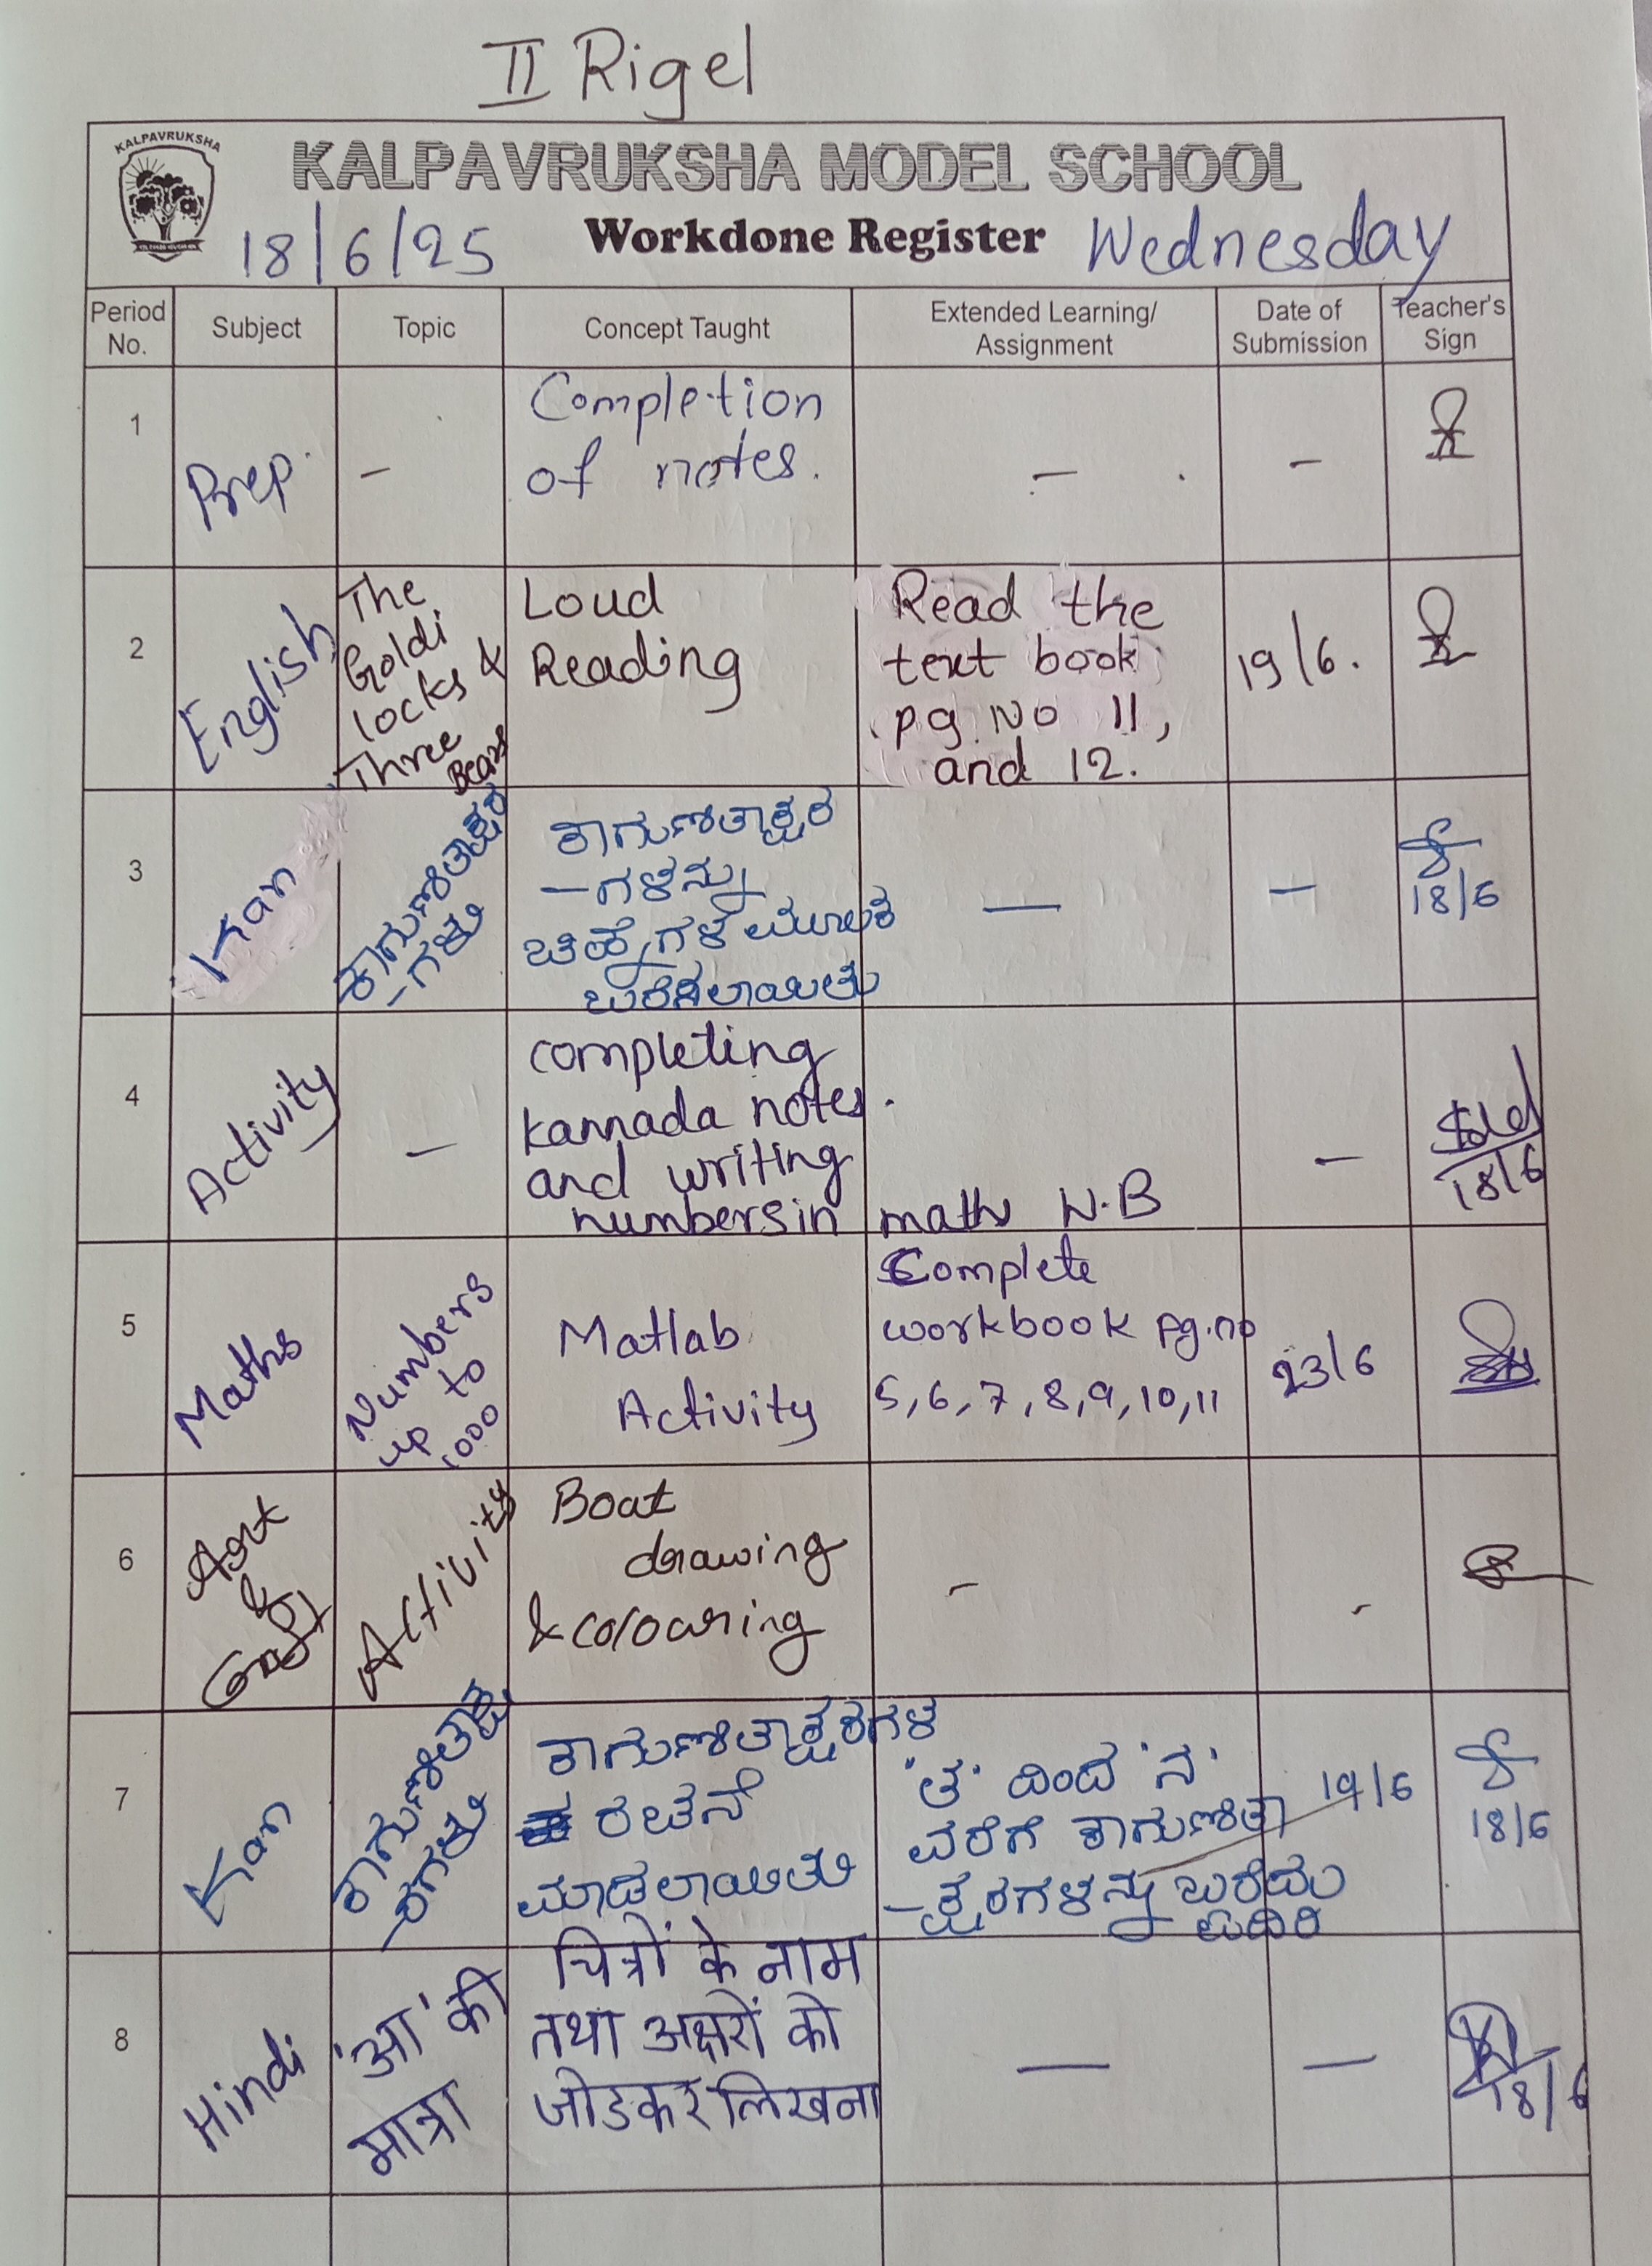 II Rigel
KALPAVRUKSHA
KALPAVRUKSHA MODEL SCHOOL
18/6/25 Workdone Register Wednesday
Period No. Subject Topic Concept Taught Extended Learning/ Assignment Date of Submission Teacher's Sign
1
Prep.
-
Completion
of notes.
-
-
2
English
The
Goldi
locks &
Three
Bears
Loud
Reading
Read the
text book
pg No 11,
and 12.
19/6.
3
Kan
ಕಾಗುಣಿತಾಕ್ಷರ
-ಗಳು
ಕಾಗುಣಿತಾಕ್ಷರ
-ಗಳನ್ನು
ಚಿಹ್ನೆಗಳ ಮೂಲಕ
ಬರೆಸಲಾಯಿತು
—
-
18/6
4
Activity
-
completing
kannada notes.
and writing
numbers in maths W.B
-
18/6
5
Maths
Numbers
up to
1000
Matlab
Activity
Complete
workbook pg.no
5, 6, 7, 8, 9, 10, 11
23/6
6
Art
&
Craft
Activity
Boat
drawing
& colouring
-
-
7
Kan
ಕಾಗುಣಿತಾಕ್ಷ
-ರಗಳು
ಕಾಗುಣಿತಾಕ್ಷರಗಳ
ರಚನೆ
ಮಾಡಲಾಯಿತು
'ತ' ದಿಂದ 'ನ'
ವರೆಗೆ ಕಾಗುಣಿತಾ
-ಕ್ಷರಗಳನ್ನು ಬರೆದು
19/6
18/6
8
Hindi
'आ' की
मात्रा
चित्रों के नाम
तथा अक्षरों को
जोडकर लिखना
—
—
18/6